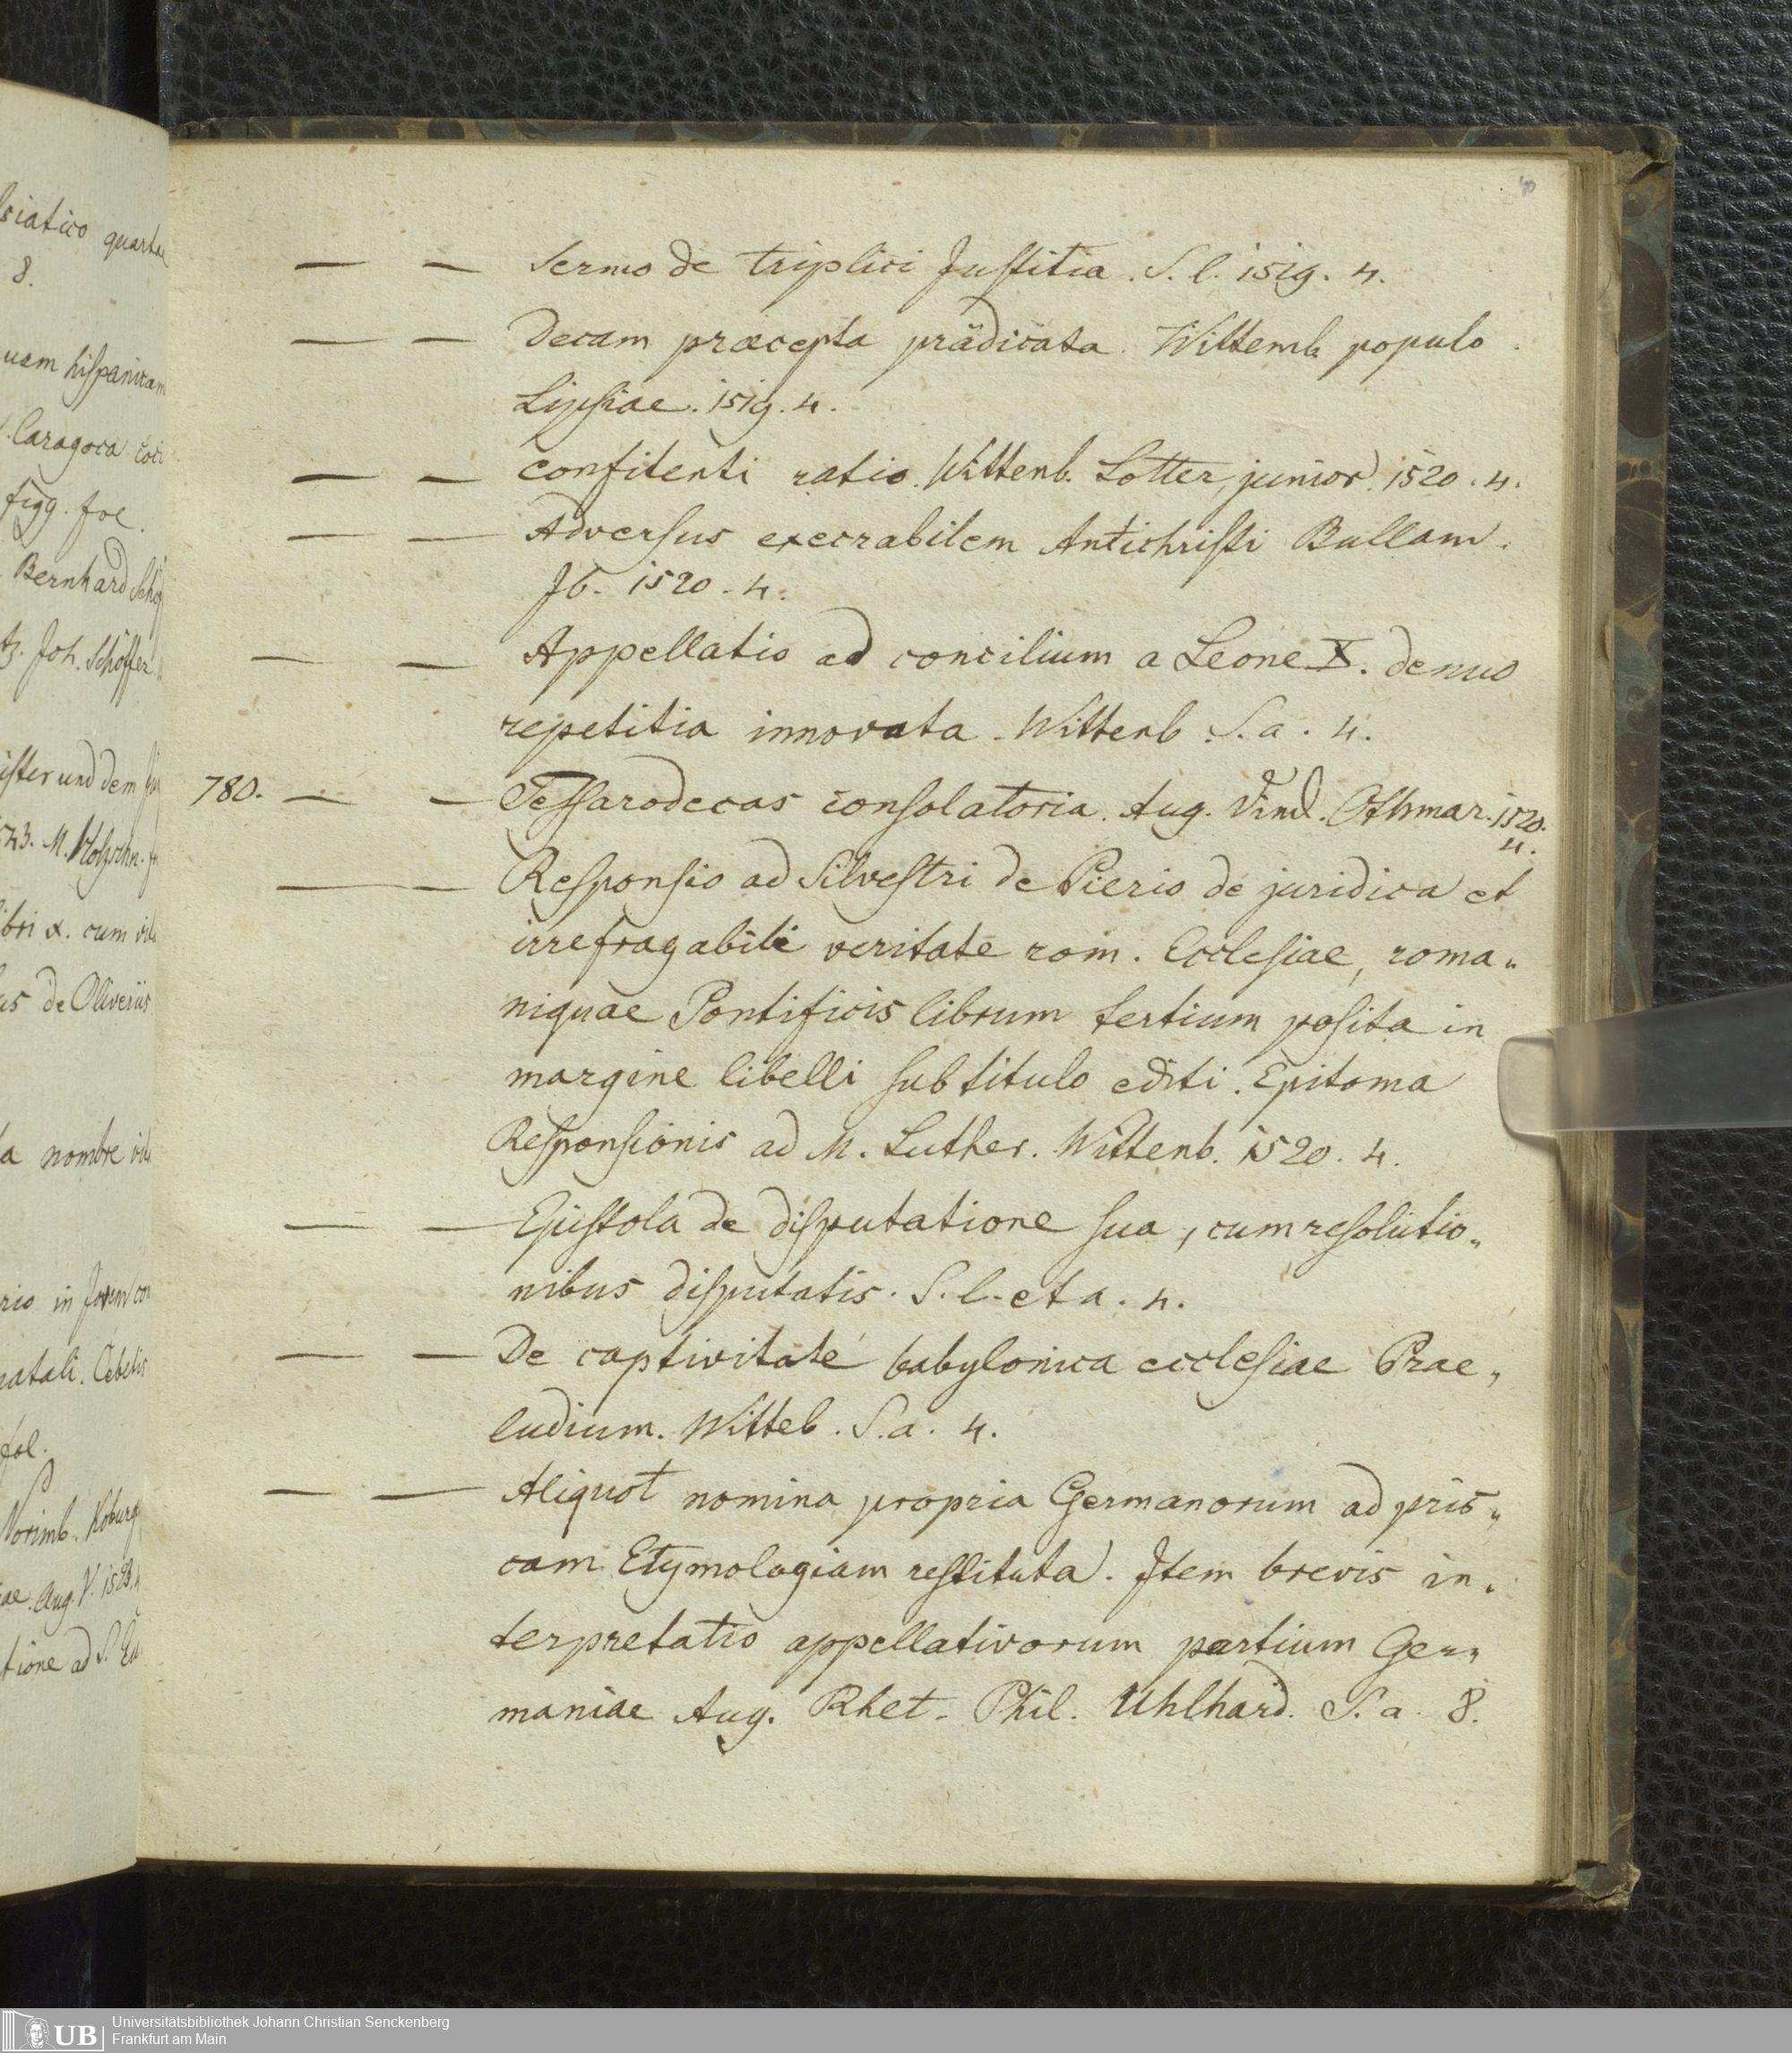 siatico quarta
8.
uam hispanicam
Caragoca
figg. foe.
Bernhard
Joh. Schöffer
ister und dem
543. M.
libri x. cum
us de Oliveriis
a nombre
rio in
natali. Cebetis
fol.
Norimb. Koburg
Aug. V. 1523.
tione ad S.
40
— — Sermo de triplici Justitia. S. l. 1519. 4.
— — Decam præcepta prädicata. Wittemb populo.
Lipsiae. 1519. 4.
— — confitenti ratio. Wittenb. Lotter, junior. 1520. 4.
— — Adversus execrabilem Antichristi Bullam.
Jb. 1520. 4.
— — Appellatio ad concilium a Leone X. denuo
repetitia innovata. Wittenb. S. a. 4.
780. — — Tessarodecas consolatoria. Aug. Vind. Othmar. 1520.
4.
— — Responsio ad Silvestri de Pierio de juridica et
irrefragabili veritate rom. Ecclesiae, roma„
niquae Pontificis librum tertium posita in
margine libelli sub titulo editi. Epitoma
Responsionis ad M. Luther. Wittenb. 1520. 4.
— — Epistola de disputatione sua, cum resolutio„
nibus disputatis. S. l. et a. 4.
— — De captivitate babylonica ecclesiae Prae„
ludium. Witteb. S. a. 4.
— — Aliquot nomina propria Germanorum ad pris„
cam Etymologiam restituta. Item brevis in„
terpretatio appellativorum partium Ger„
maniae Aug. Rhet. Phil. Uhlhard. S. a. 8.
UB Universitätsbibliothek Johann Christian Senckenberg
Frankfurt am Main